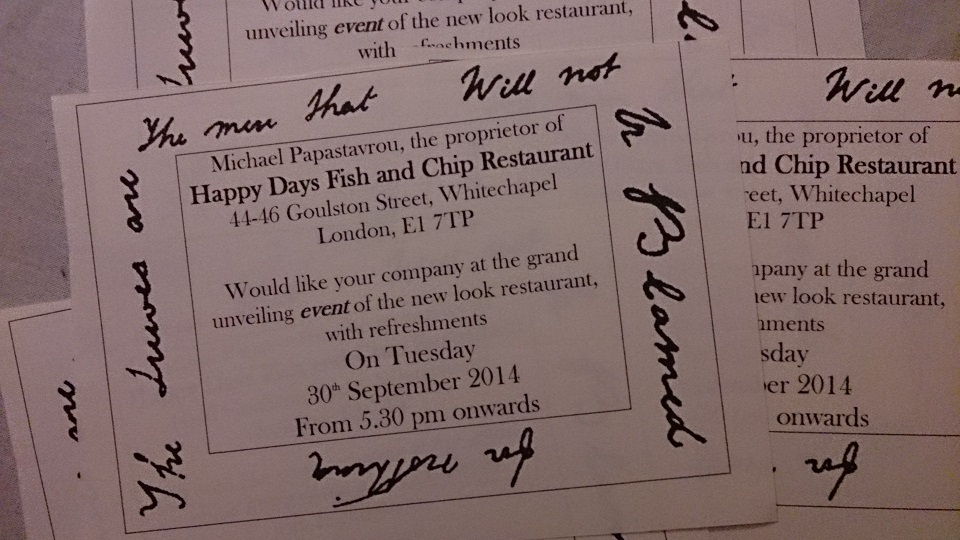 Would like your
unveiling event of the new look restaurant,
with
The Juwes are
The men That Will not
Be Blamed
for nothing
Michael Papastavrou, the proprietor of
Happy Days Fish and Chip Restaurant
44-46 Goulston Street, Whitechapel
London, E1 7TP
Would like your company at the grand
unveiling event of the new look restaurant,
with refreshments
On Tuesday
30th September 2014
From 5.30 pm onwards
Will
the proprietor of
Chip Restaurant
Whitechapel
E1 7TP
at the grand
look restaurant,
2014
onwards
for
are